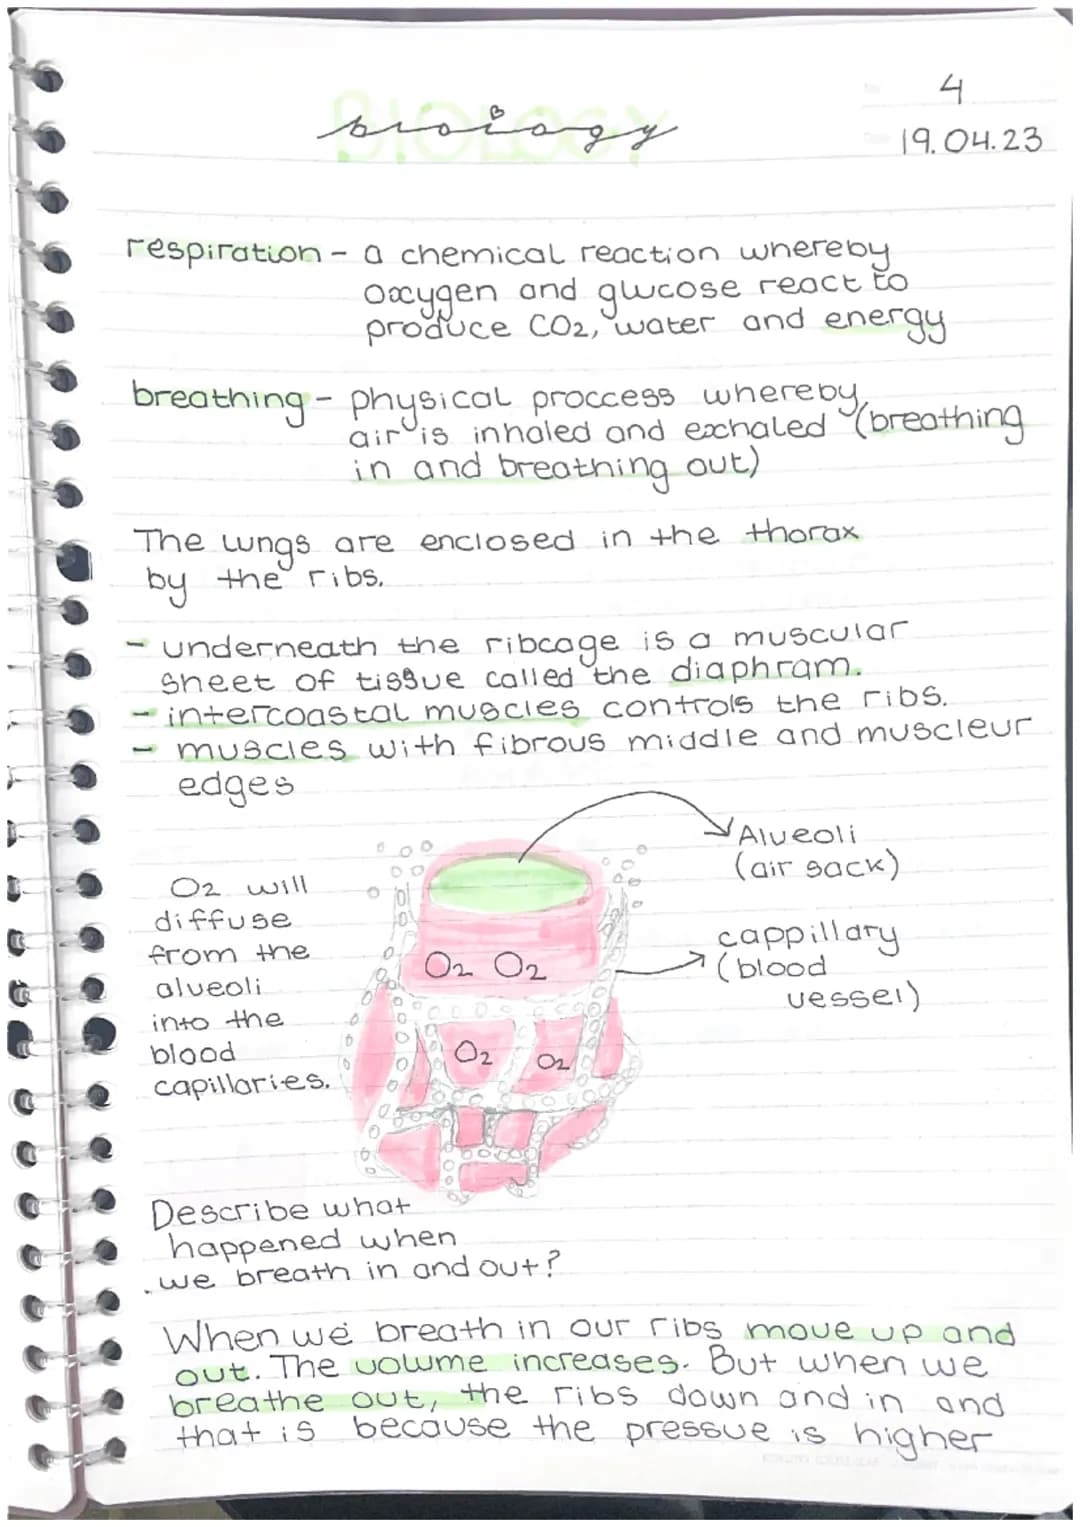 BIOLOGY
biology
4
19.04.23
respiration - a chemical reaction whereby
oxygen and glucose react to
produce CO2, water and energy
breathing - physical proccess whereby
air is inhaled and exhaled (breathing
in and breathing out)
The lungs are enclosed in the thorax
by the ribs.
- underneath the ribcage is a muscular
sheet of tissue called the diaphram.
- intercoastal muscles controls the ribs.
- muscles with fibrous middle and muscleur
edges
Alveoli
(air sack)
O2 will
diffuse
from the
alveoli
into the
blood
capillaries.
cappillary
(blood
vessel)
O2 O2
O2 O2
Describe what
happened when
we breath in and out?
When we breath in our ribs move up and
out. The volume increases. But when we
breathe out, the ribs down and in and
that is because the pressue is higher